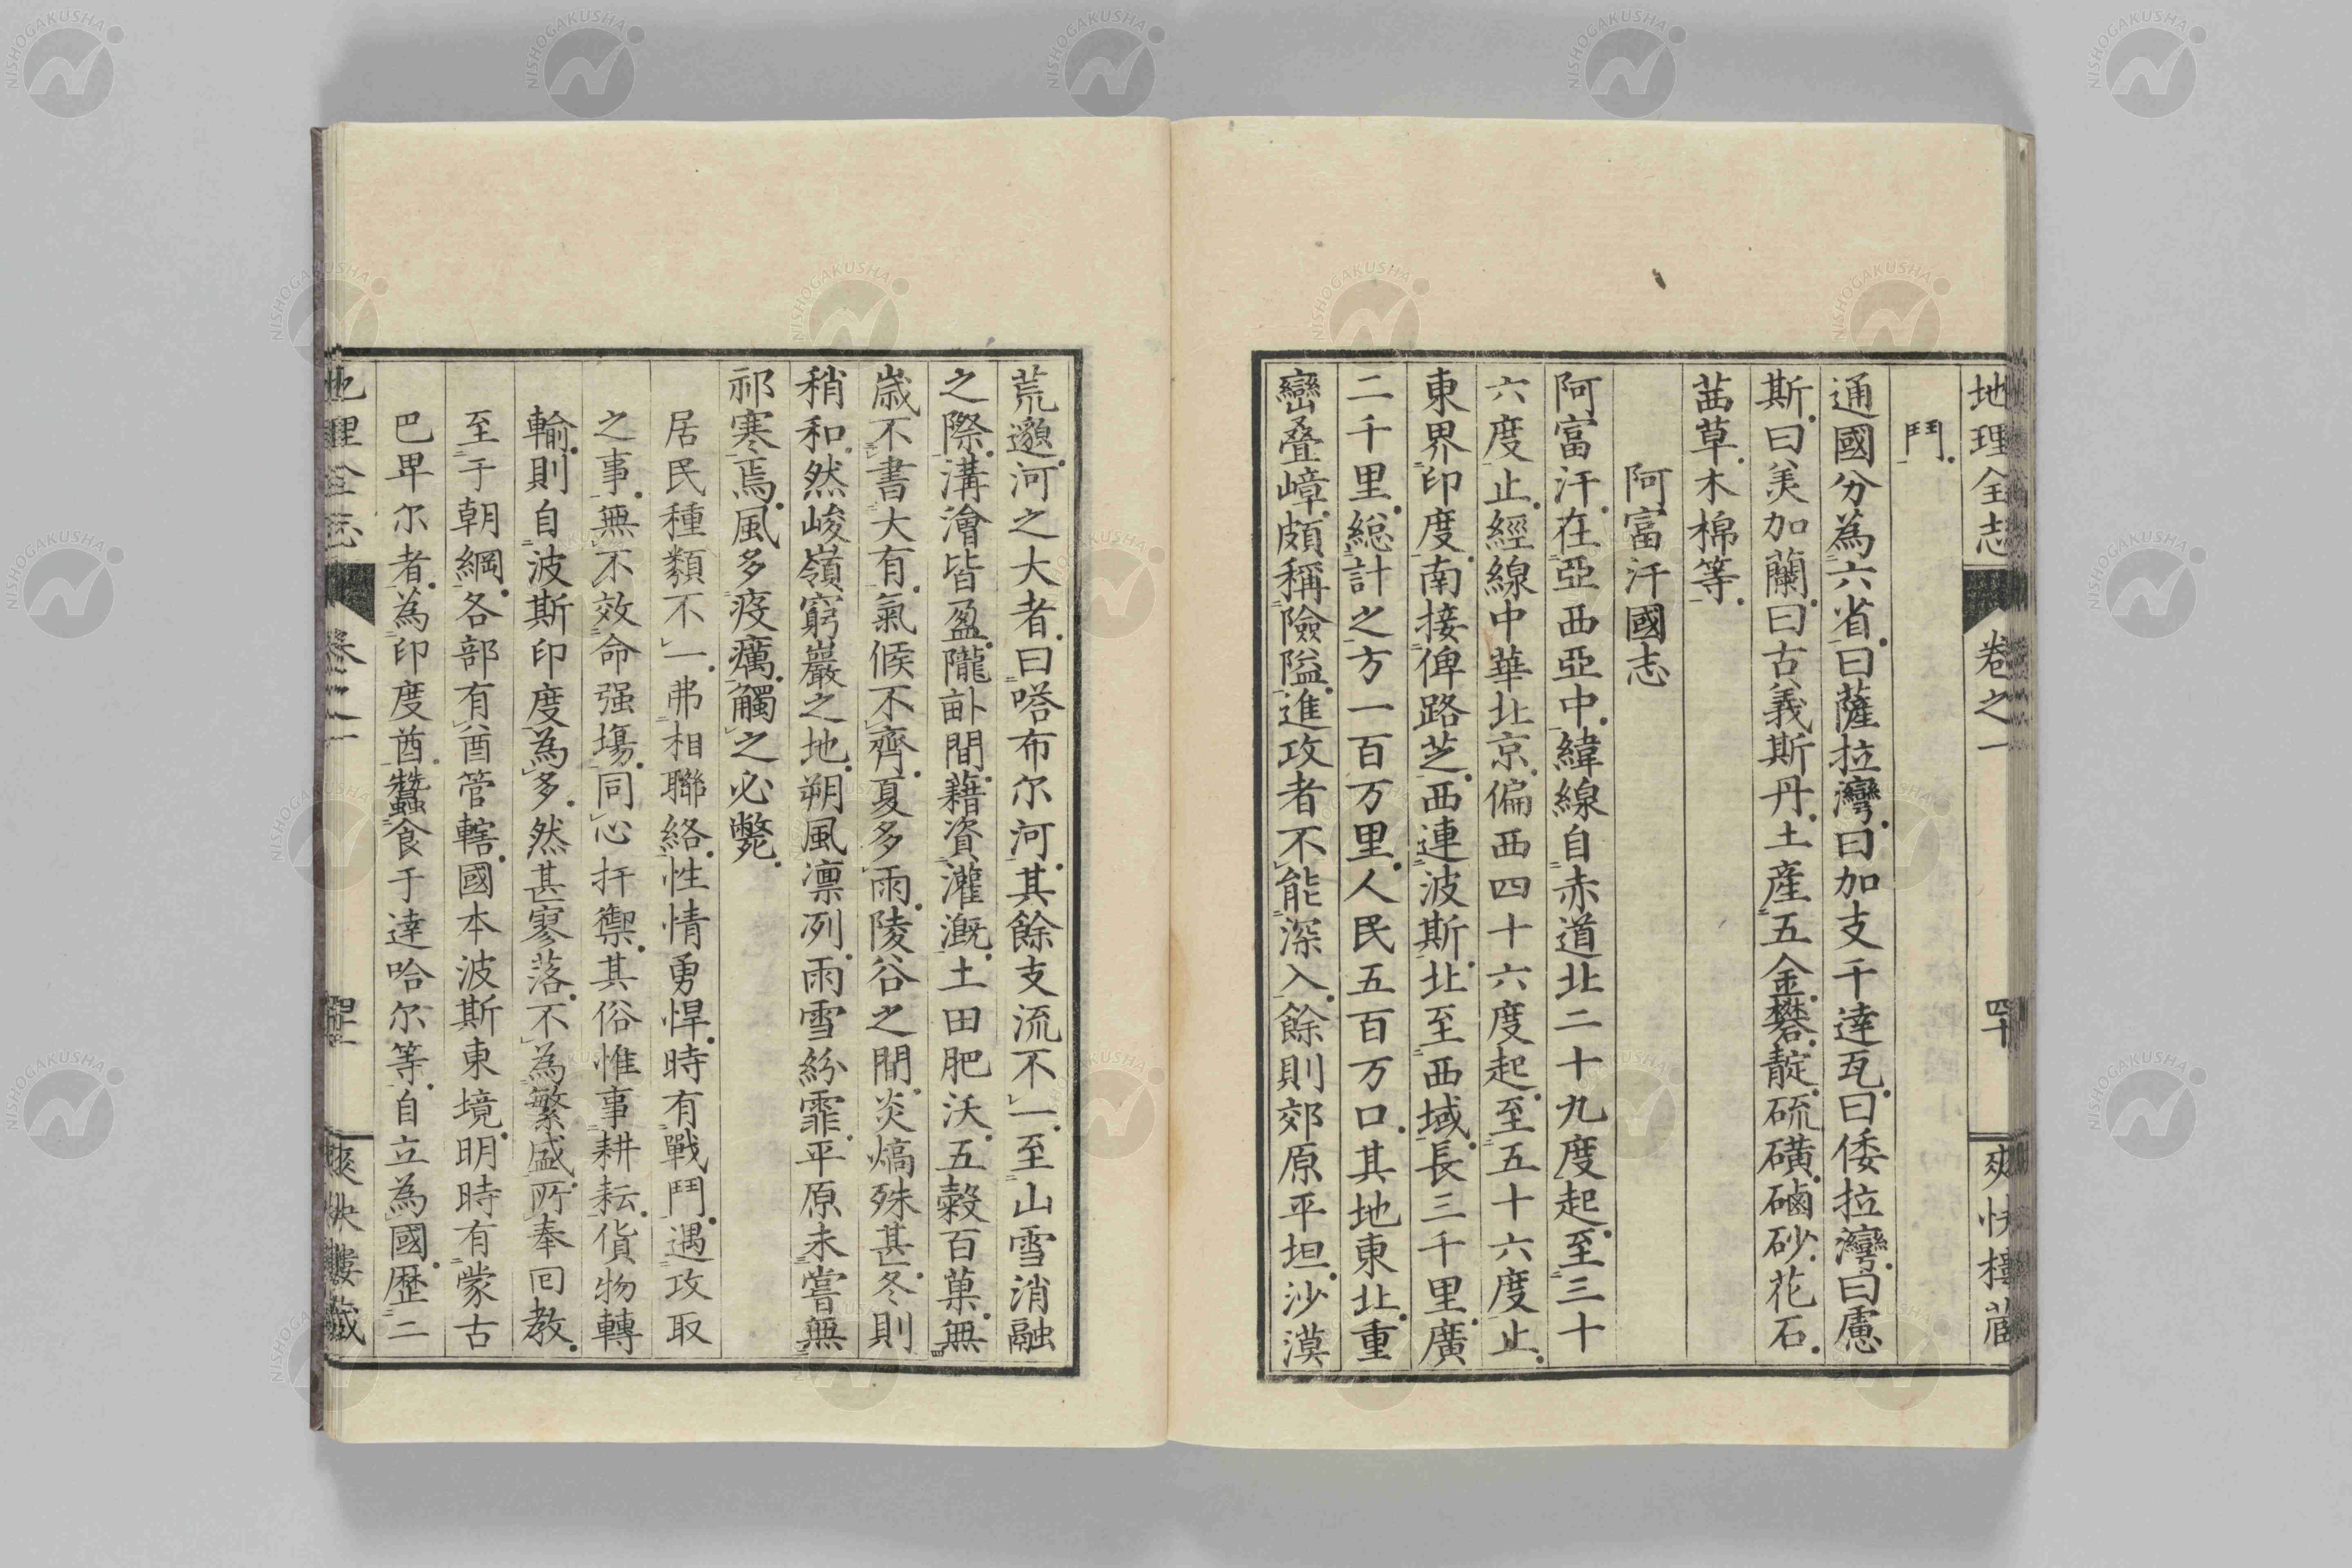 地理全志 卷之一 四十 爽快樓藏
鬥
通國分為六省曰薩拉灣曰加支干達瓦曰倭拉灣曰慮
斯曰美加蘭曰古義斯丹土產五金礬靛硫磺磠砂花石
茜草木棉等
阿富汗國志
阿富汗在亞西亞中緯線自赤道北二十九度起至三十
六度止經線中華北京偏西四十六度起至五十六度止
東界印度南接俾路芝西連波斯北至西域長三千里廣
二千里總計之方一百万里人民五百万口其地東北重
巒叠嶂頗稱險隘進攻者不能深入餘則郊原平坦沙漠
荒邈河之大者曰嗒布尔河其餘支流不一至山雪消融
之際溝澮皆盈隴畝間藉資灌溉土田肥沃五穀百菓無
歲不書大有氣候不齊夏多雨陵谷之間炎熇殊甚冬則
稍和然峻嶺窮巖之地朔風凛冽雨雪紛霏平原未嘗無
祁寒焉風多疫癘觸之必斃
居民種類不一弗相聯絡性情勇悍時有戰鬥遇攻取
之事無不效命强埸同心扞禦其俗惟事耕耘貨物轉
輸則自波斯印度為多然甚寥落不為繁盛所奉回教
至于朝綱各部有酋管轄國本波斯東境明時有蒙古
巴卑尔者為印度酋蠶食于達哈尔等自立為國歷二
地理全志 卷之一 爽快樓藏
NISHOGAKUSHA